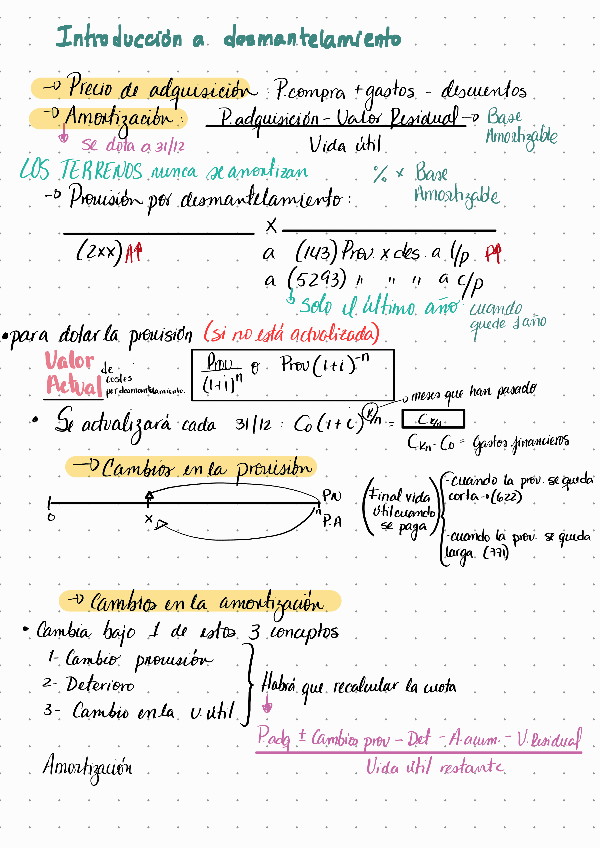 Introducción a desmantelamiento
→ Precio de adquisición: P.compra + gastos - descuentos
→ Amortización: P.adquisición - Valor Residual → Base Amortizable
Vida útil
Se dota a 31/12
LOS TERRENOS nunca se amortizan
% x Base Amortizable
→ Provisión por desmantelamiento:
x
(2xx) A↑ a (143) Prov. x des. a l/p. P↑
a (5293) " " " a c/p
Solo el último año cuando
quede 1 año
• para dotar la provisión (si no está actualizada)
Valor Actual de costes por desmantelamiento.
Prov/(1+i)^n o Prov(1+i)^-n
→ meses que han pasado
• Se actualizará cada 31/12: Co(1+i)^k/n = Ck/n
Ck/n - Co = Gastos financieros
→ Cambios en la provisión
0 x n
P.N
P.A
(Final vida útil cuando se paga)
- cuando la prov. se queda
corta → (622)
- cuando la prov. se queda
larga. (771)
→ Cambios en la amortización
• Cambia bajo 1 de estos 3 conceptos
1- Cambio provisión
2- Deterioro
3- Cambio en la v.útil
Habrá que recalcular la cuota
P.adq ± Cambios prov - Det - A.acum. - V.Residual
Vida útil restante
Amortización